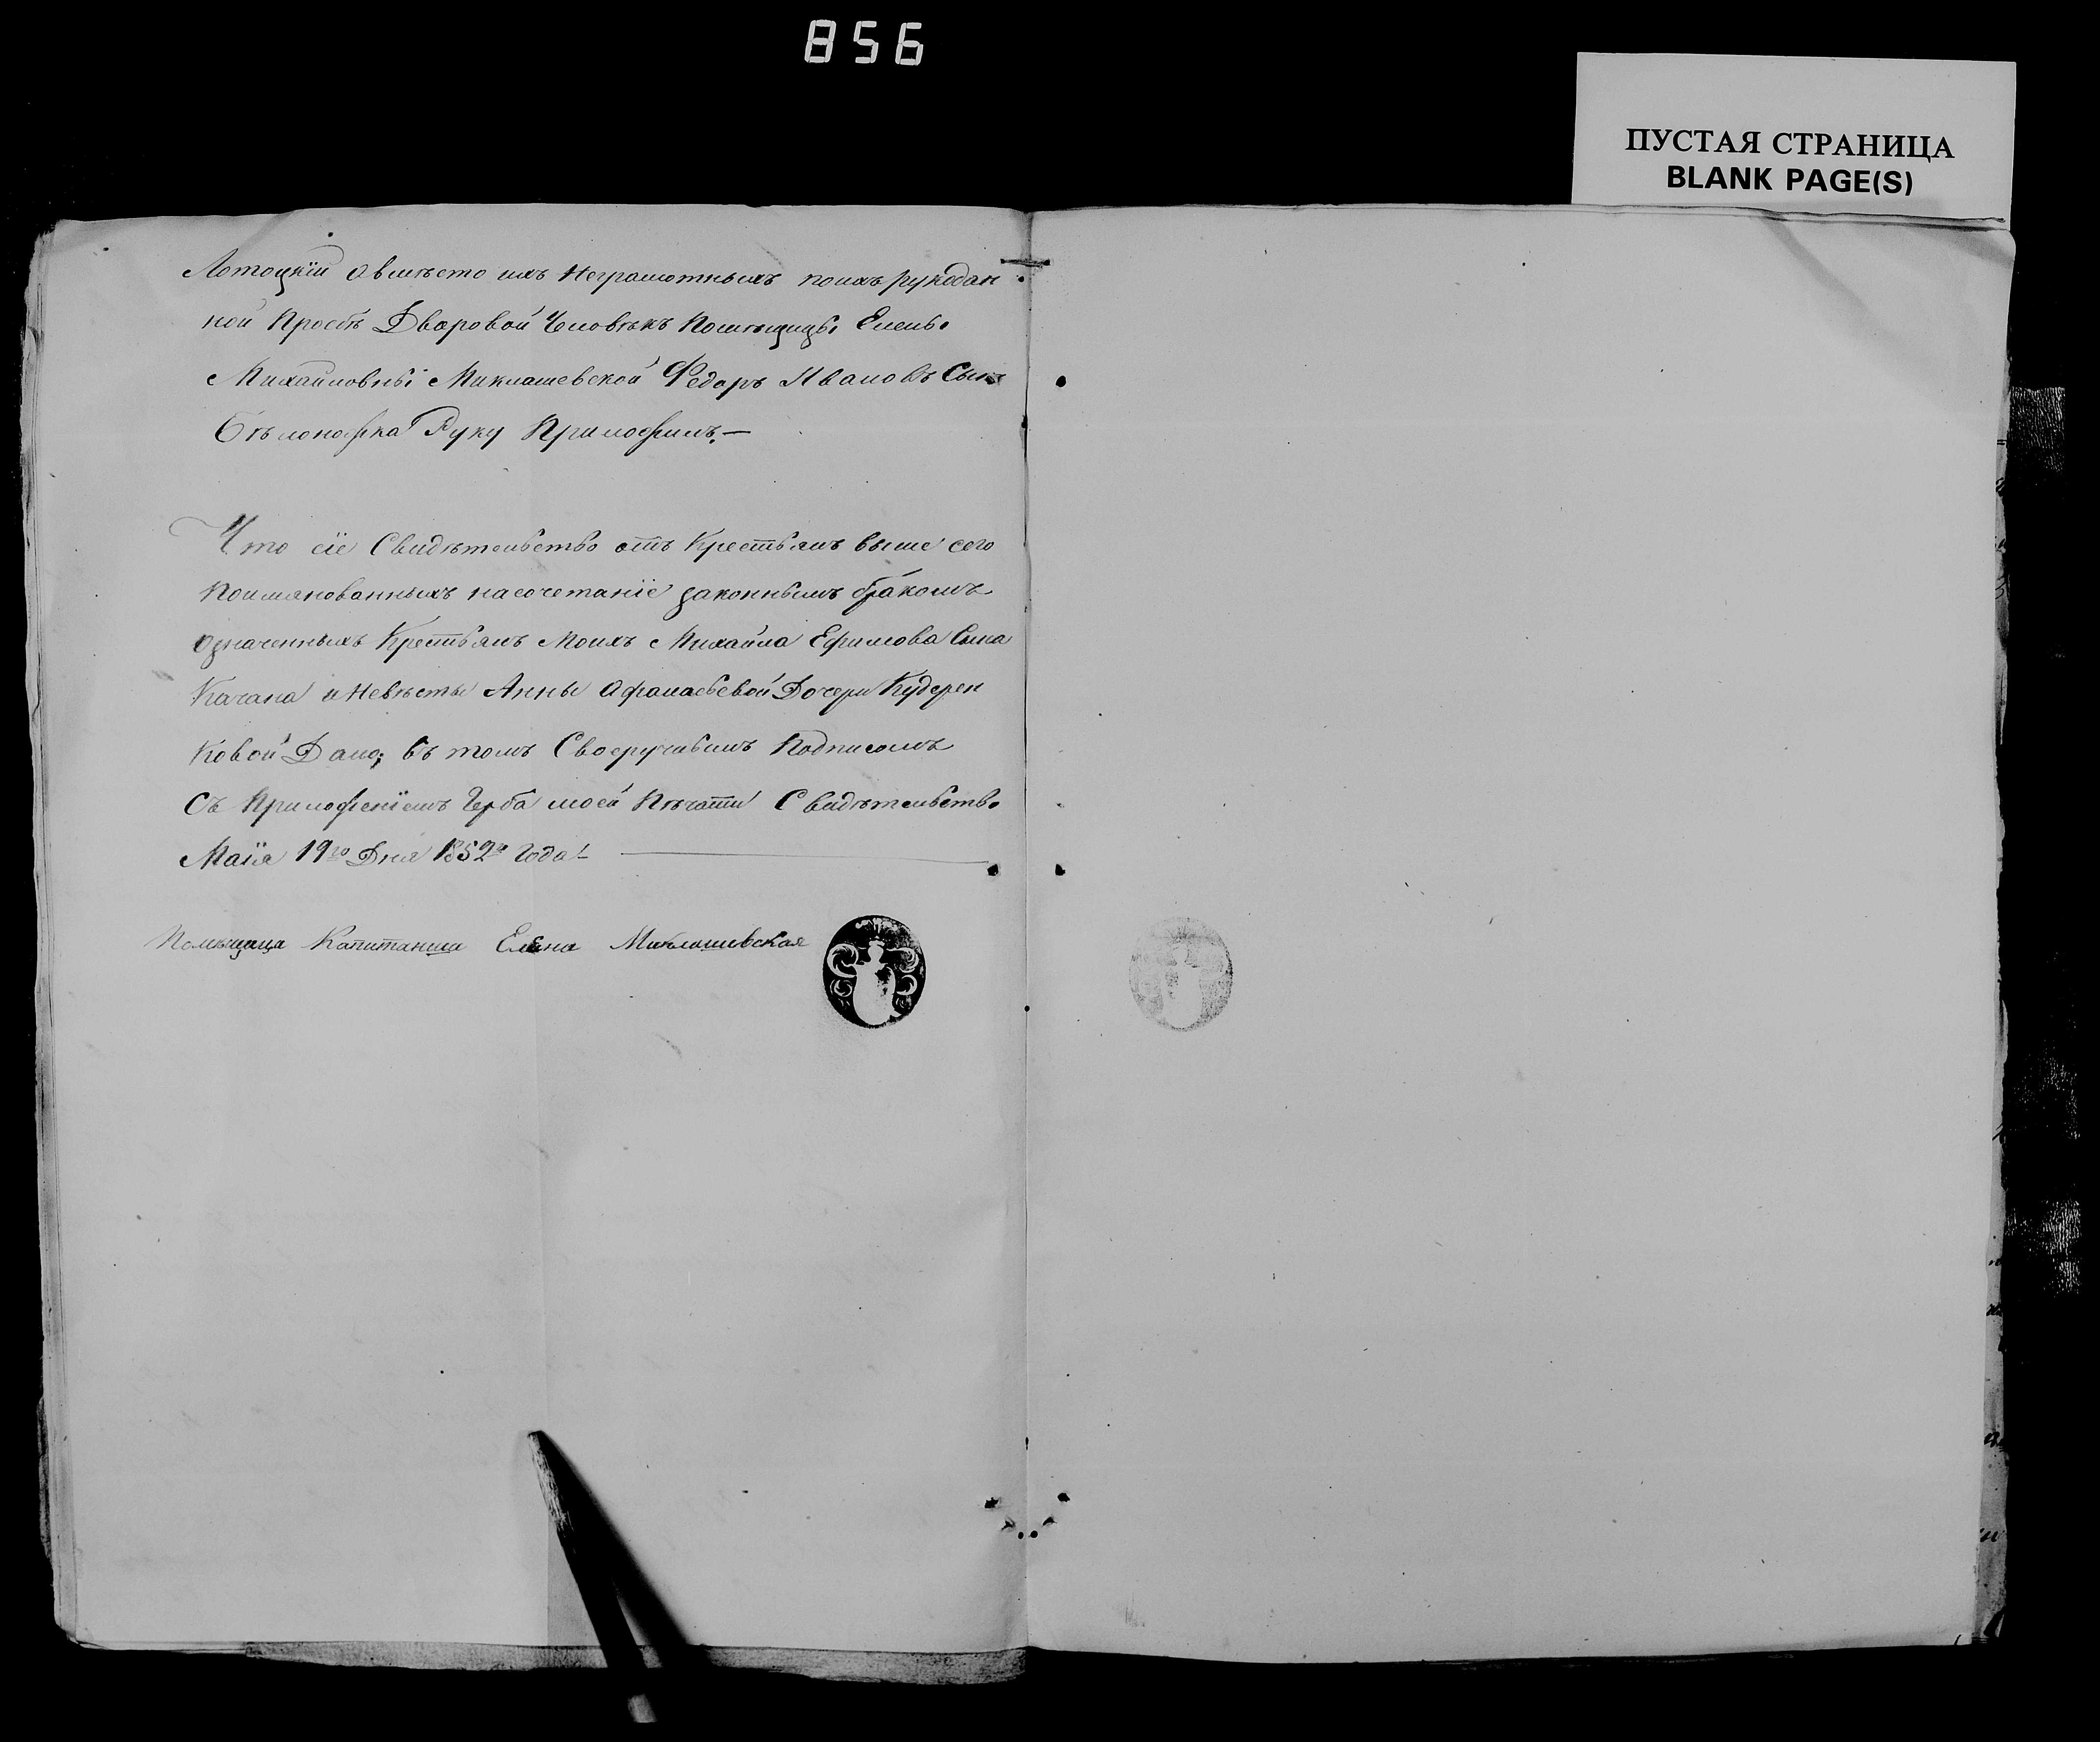 856
ПУСТАЯ СТРАНИЦА
BLANK PAGE(S)
Лотоцкій авмѣсто ихъ Неграмотныхъ поихъ рукодан
ной Прозбѣ Дворовой Человѣкъ Помѣщицы Елены
Михайловны Миклашевской Федоръ Ивановъ Сынъ
Бѣлоножка Руку Приложилъ. —
Что сіе Свидѣтельство отъ Крестьянъ выше сего
Поимянованныхъ насочетаніе законнымъ бракомъ
Означенныхъ Крестьянъ Моихъ Михайла Ефимова Сына
Качана и Невѣсты Анны Афанасьевой Дочери Кудерен
ковой Дано; въ томъ Своеручнымъ Подписомъ
Съ Приложеніемъ Герба моей Пѣчати Свидѣтельство
Маія 19го Дня 1852го Года. —
Помѣщица Капитанша Елена Миклашевская